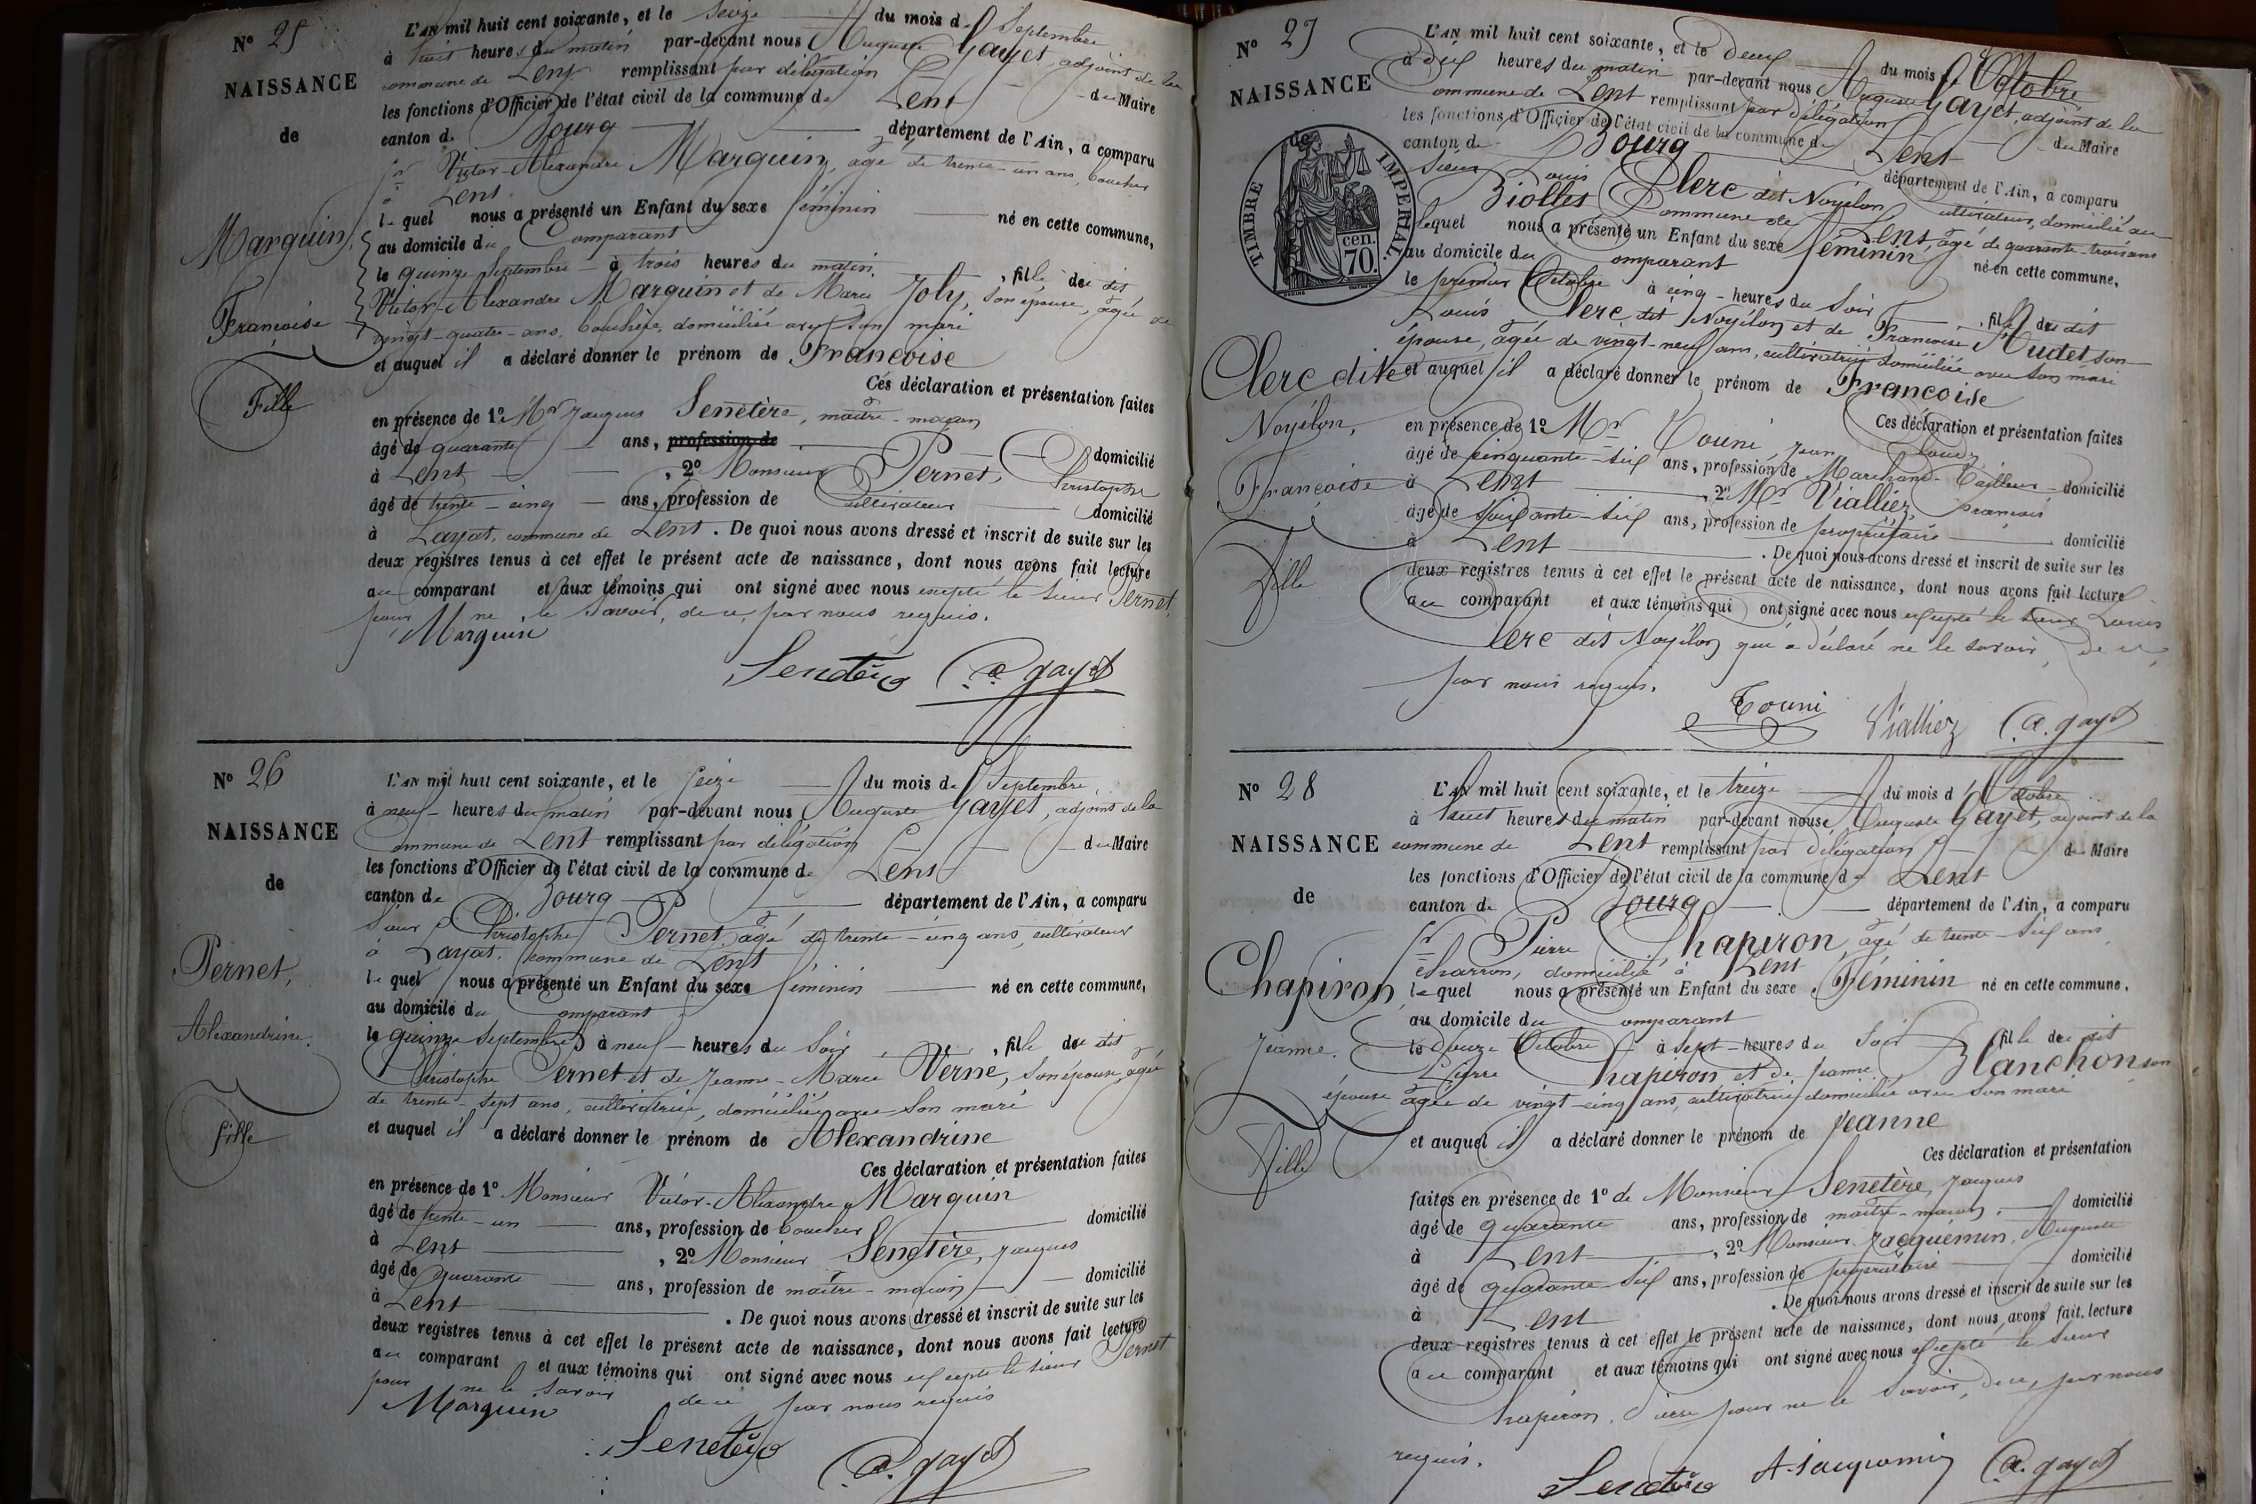 N° 25
NAISSANCE
de
Marquin,
Françoise
Fille
L'AN mil huit cent soixante, et le seize du mois de Septembre
à huit heures du matin par-devant nous Auguste Gayet, adjoint de la
commune de Lent remplissant par délégation du Maire
les fonctions d'Officier de l'état civil de la commune de Lent
canton de Bourg département de l'Ain, a comparu
Sr Victor-Alexandre Marquin, âgé de trente-un ans, boucher
à Lent
lequel nous a présenté un Enfant du sexe féminin né en cette commune,
au domicile du Comparant
le quinze Septembre à trois heures du matin, fille du dit
Victor-Alexandre Marquin et de Marie Joly, son épouse, âgée de
vingt-quatre-ans, bouchère, domiciliée avec son mari
et auquel il a déclaré donner le prénom de Françoise
Ces déclaration et présentation faites
en présence de 1° Mr Jacques Senetère, maître-maçon
âgé de quarante ans, profession de domicilié
à Lent , 2° Monsieur Pernet, Christophe
âgé de trente-cinq ans, profession de Cultivateur domicilié
à Layat, commune de Lent. De quoi nous avons dressé et inscrit de suite sur les
deux registres tenus à cet effet le présent acte de naissance, dont nous avons fait lecture
au comparant et aux témoins qui ont signé avec nous excepté le sieur Pernet,
pour ne le savoir, de ce, par nous requis.
Marquin
Senetère A. Gayet
N° 26
NAISSANCE
de
Pernet,
Alexandrine.
fille
L'AN mil huit cent soixante, et le seize du mois de Septembre,
à neuf heures du matin par-devant nous Auguste Gayet, adjoint de la
Commune de Lent remplissant par délégation du Maire
les fonctions d'Officier de l'état civil de la commune de Lent
canton de Bourg département de l'Ain, a comparu
Sieur Christophe Pernet, âgé de trente-cinq ans, cultivateur
à Layat, commune de Lent
lequel nous a présenté un Enfant du sexe féminin né en cette commune,
au domicile du Comparant
le quinze Septembre à neuf heures du Soir , fille du dit
Christophe Pernet et de Jeanne-Marie Verne, son épouse, âgée
de trente-sept ans, cultivatrice, domiciliée avec son mari
et auquel il a déclaré donner le prénom de Alexandrine
Ces déclaration et présentation faites
en présence de 1° Monsieur Victor-Alexandre Marquin
âgé de trente-un ans, profession de boucher domicilié
à Lent , 2° Monsieur Senetère, Jacques
âgé de Quarante ans, profession de maître-maçon domicilié
à Lent . De quoi nous avons dressé et inscrit de suite sur les
deux registres tenus à cet effet le présent acte de naissance, dont nous avons fait lecture
au comparant et aux témoins qui ont signé avec nous excepté le sieur Pernet
pour ne le savoir de ce par nous requis
Marquin
Senetère
A. Gayet
N° 27
NAISSANCE
de
TIMBRE IMPERIAL
70 cen.
Clerc dite
Noyélon,
Françoise
Fille
L'AN mil huit cent soixante, et le deux du mois d'Octobre
à dix heures du matin par-devant nous Auguste Gayet, adjoint de la
commune de Lent remplissant par délégation du Maire
les fonctions d'Officier de l'état civil de la commune de Lent
canton de Bourg département de l'Ain, a comparu
Sieur Louis Clerc dit Noyélon cultivateur, domicilié au
Biolles Commune de Lent, âgé de quarante-trois ans
lequel nous a présenté un Enfant du sexe féminin né en cette commune,
au domicile du Comparant
le premier Octobre à cinq heures du Soir , fille du dit
Louis Clerc dit Noyélon et de Françoise Rudet son
épouse, âgée de vingt-neuf ans, cultivatrice domiciliée avec son mari
et auquel il a déclaré donner le prénom de Françoise
Ces déclaration et présentation faites
en présence de 1° Mr Touni, Jean Claude
âgé de cinquante-six ans, profession de Marchand-Tailleur domicilié
à Lent , 2° Mr Vialliez, français
âgé de soixante-six ans, profession de propriétaire domicilié
à Lent . De quoi nous avons dressé et inscrit de suite sur les
deux registres tenus à cet effet le présent acte de naissance, dont nous avons fait lecture
au comparant et aux témoins qui ont signé avec nous excepté le sieur Louis
Clerc dit Noyélon qui a déclaré ne le savoir, de ce,
par nous requis.
Touni Vialliez A. Gayet
N° 28
NAISSANCE
de
Chapiron,
Jeanne.
Fille
L'AN mil huit cent soixante, et le treize du mois d'Octobre
à huit heures du matin par-devant nous Auguste Gayet, adjoint de la
commune de Lent remplissant par délégation du Maire
les fonctions d'Officier de l'état civil de la commune de Lent
canton de Bourg département de l'Ain, a comparu
Sr Pierre Chapiron, âgé de trente-six ans
charron, domicilié à Lent
lequel nous a présenté un Enfant du sexe Féminin né en cette commune,
au domicile du Comparant
le douze Octobre à sept heures du Soir fille du dit
Pierre Chapiron et de Jeanne Blanchon son
épouse âgée de vingt-cinq ans, cultivatrice domiciliée avec son mari
et auquel il a déclaré donner le prénom de Jeanne
Ces déclaration et présentation
faites en présence de 1° de Monsieur Senetère, Jacques
âgé de quarante ans, profession de maître-maçon, domicilié
à Lent , 2° Monsieur Jacquemin, Auguste
âgé de quarante-six ans, profession de propriétaire domicilié
à Lent . De quoi nous avons dressé et inscrit de suite sur les
deux registres tenus à cet effet le présent acte de naissance, dont nous avons fait lecture
au comparant et aux témoins qui ont signé avec nous excepté le sieur
Chapiron, Pierre pour ne le savoir, de ce, par nous
requis.
Senetère A. Jacquemin A. Gayet